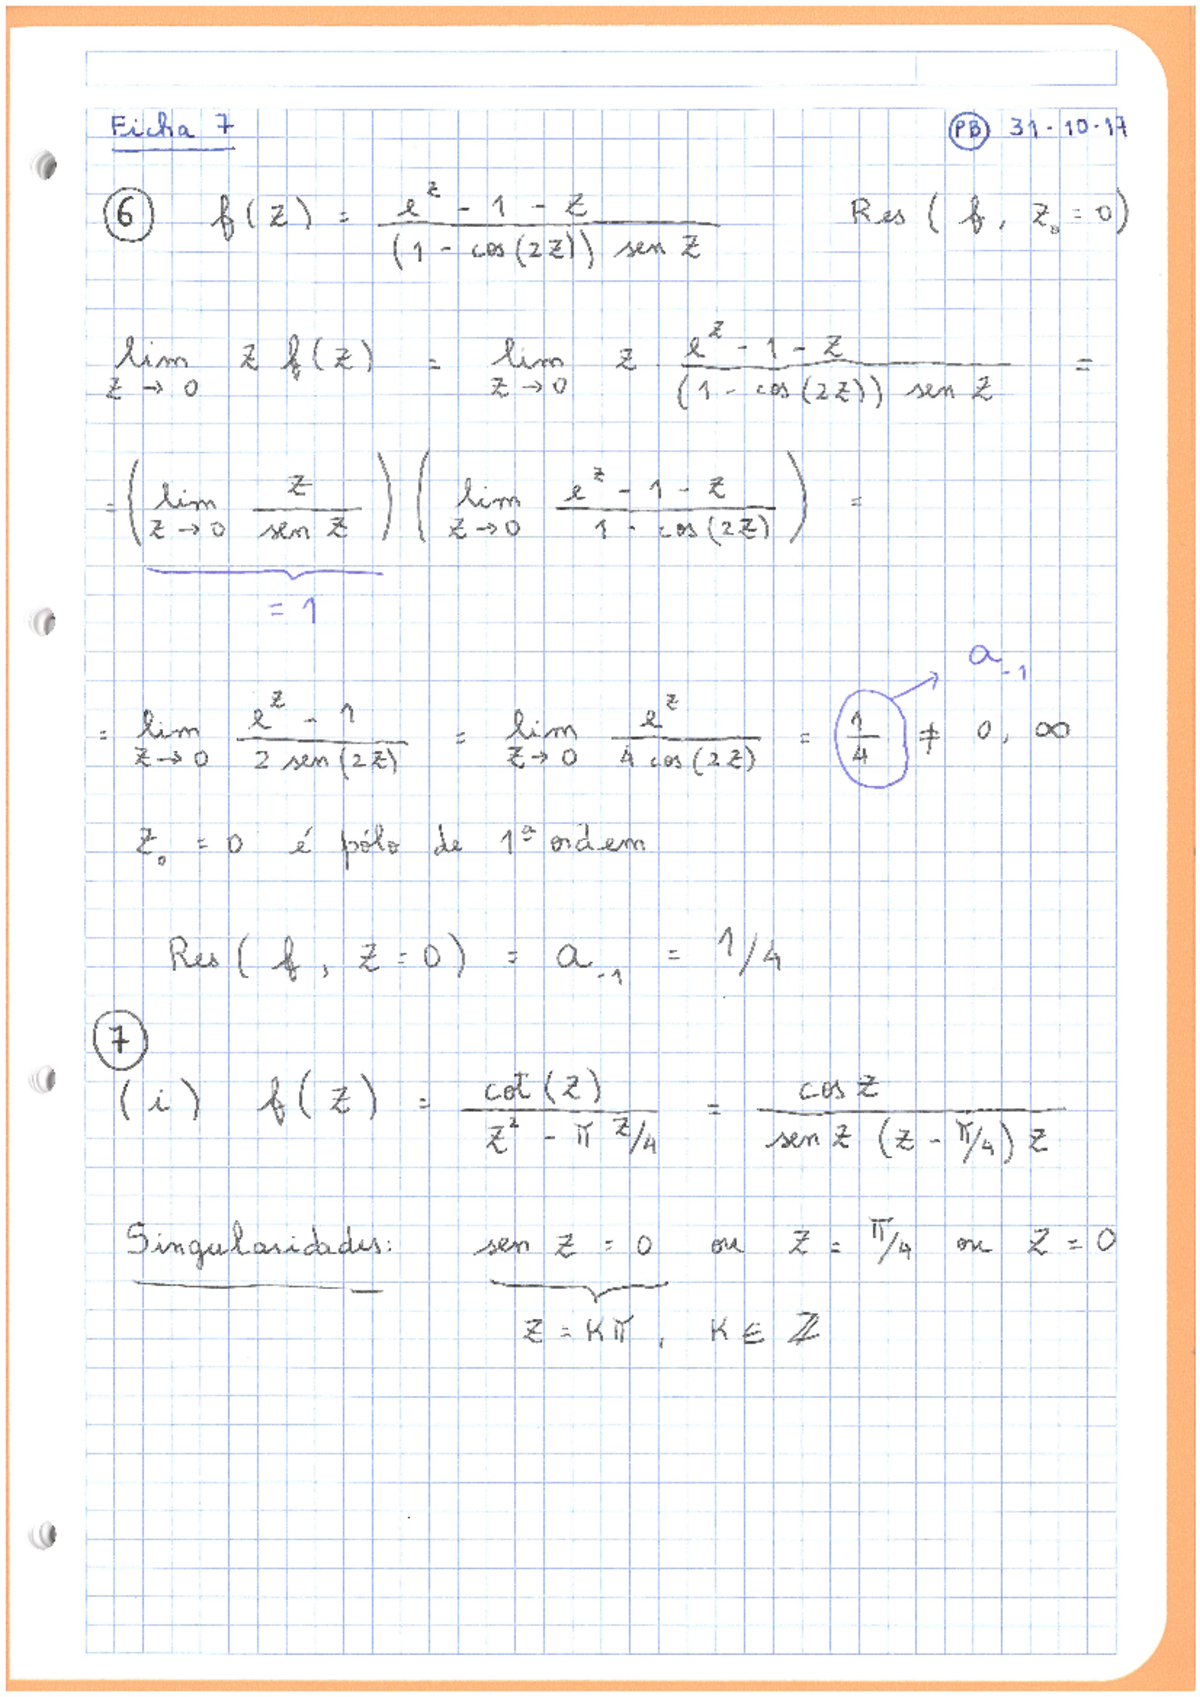 Ficha 7 PB 31-10-17
6 f(z) = (e^z - 1 - z) / ((1 - cos(2z)) sen z) Res(f, z₀ = 0)
lim z→0 z f(z) = lim z→0 z · (e^z - 1 - z) / ((1 - cos(2z)) sen z) =
= (lim z→0 z / sen z) (lim z→0 (e^z - 1 - z) / (1 - cos(2z))) =
= 1
a₋₁
= lim z→0 (e^z - 1) / (2 sen(2z)) = lim z→0 e^z / (4 cos(2z)) = 1/4 ≠ 0, ∞
z₀ = 0 é pólo de 1ª ordem
Res(f, z = 0) = a₋₁ = 1/4
7
(i) f(z) = cot(z) / (z² - π z/4) = cos z / (sen z (z - π/4) z)
Singularidades: sen z = 0 ou z = π/4 ou z = 0
z = kπ, k ∈ ℤ